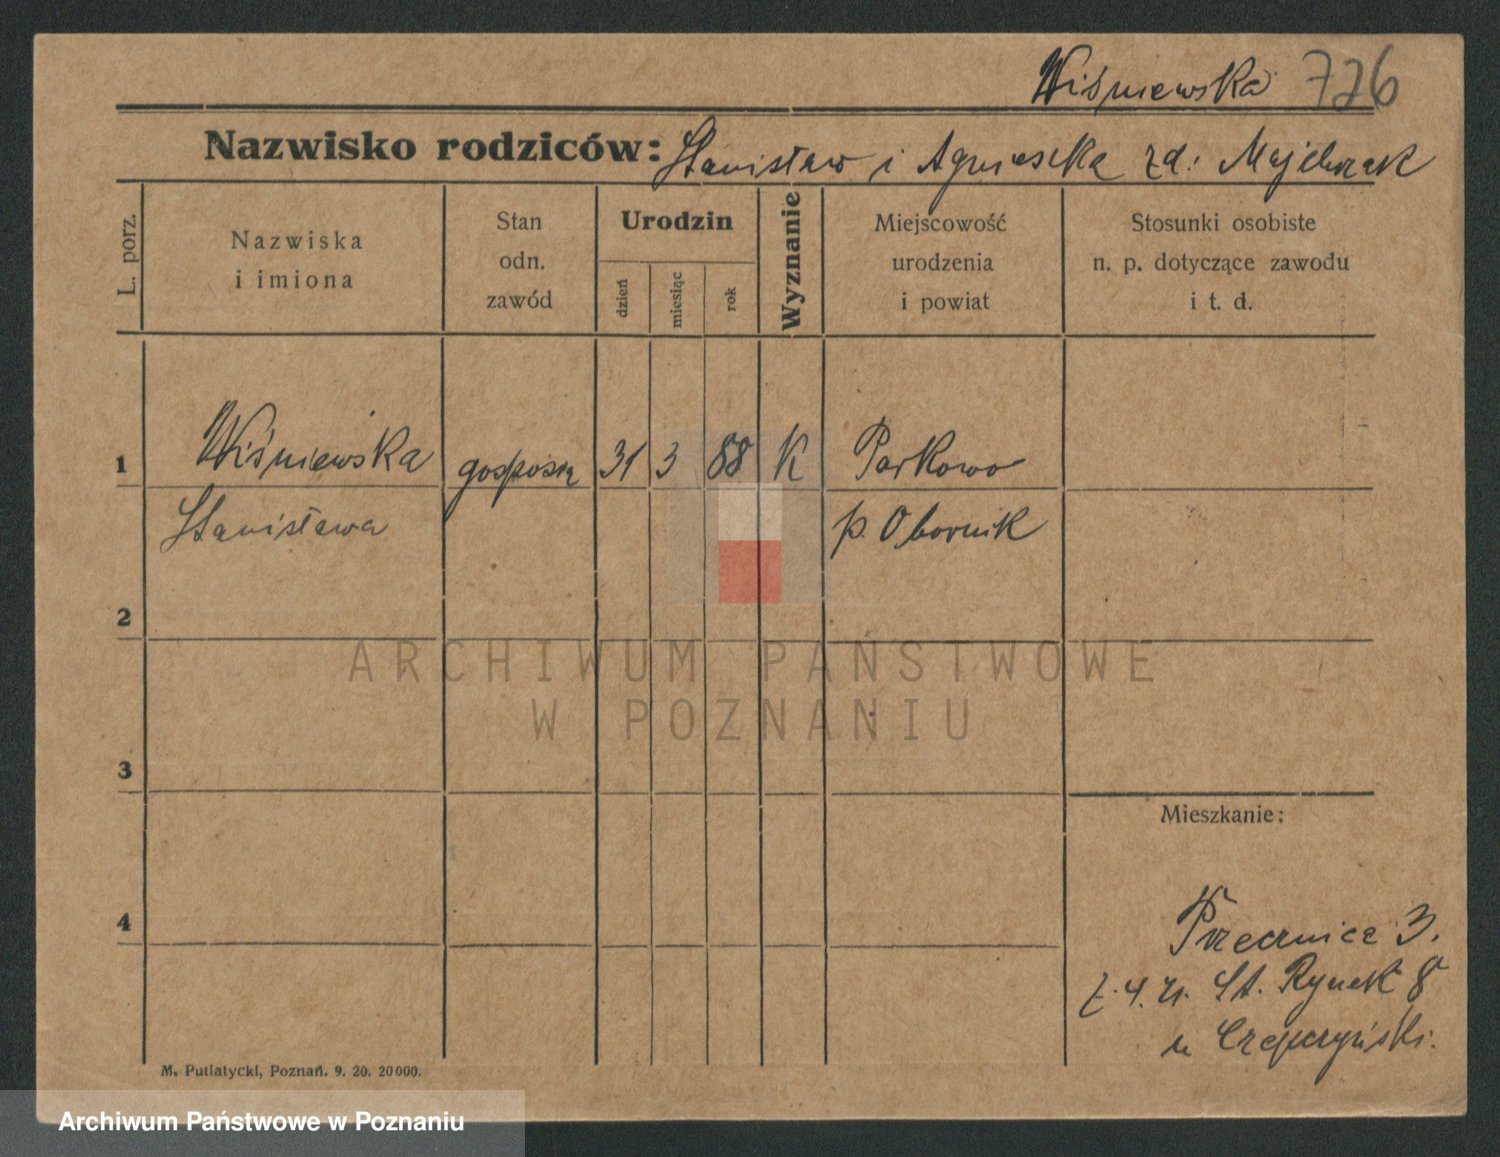 Wiśniewska 726
Nazwisko rodziców: Stanisław i Agnieszka zd: Majchrzak
L. porz.
Nazwiska
i imiona
Stan
odn.
zawód
Urodzin
dzień
miesiąc
rok
Wyznanie
Miejscowość
urodzenia
i powiat
Stosunki osobiste
n. p. dotyczące zawodu
i t. d.
1 Wiśniewska gosposia 31 3 88 K Parkowo
Stanisława p. Obornik
2
ARCHIWUM PAŃSTWOWE
W POZNANIU
3
Mieszkanie:
4
Przecznica 3.
St. Rynek 8
u Czepczyński.
M. Putiatycki, Poznań. 9. 20. 20000.
Archiwum Państwowe w Poznaniu